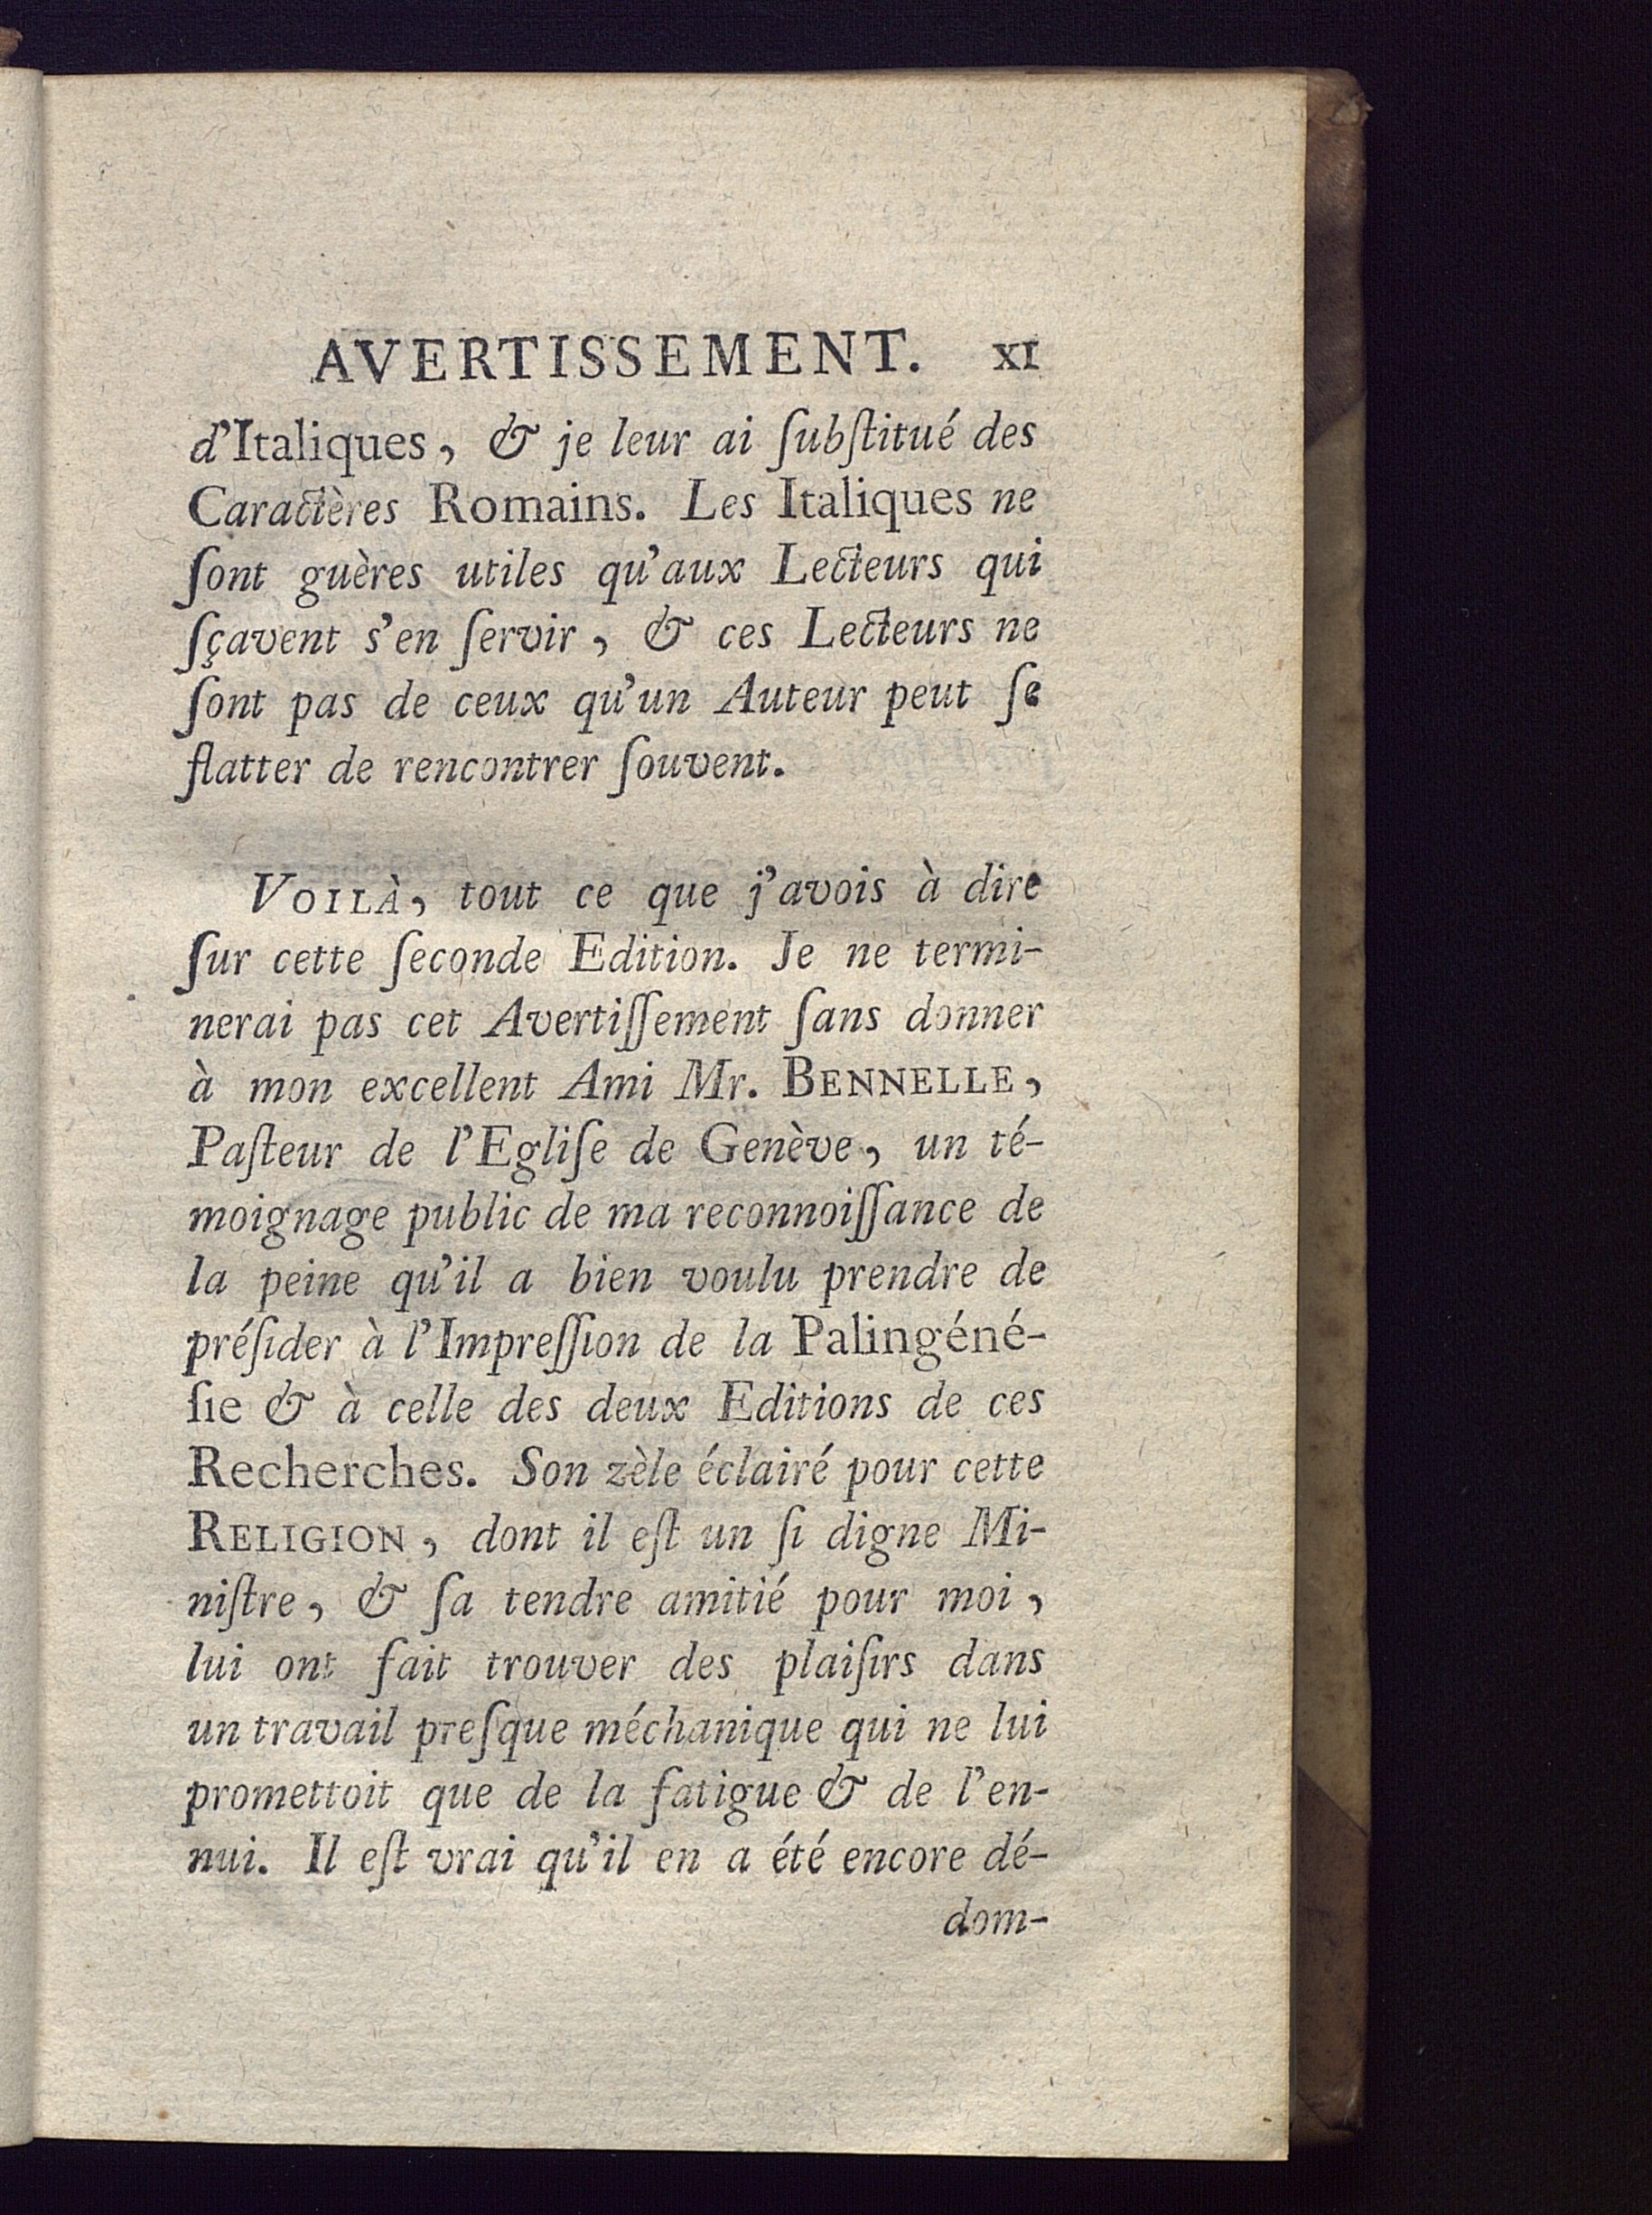 AVERTISSEMENT. XI
d'Italiques, & je leur ai ſubſtitué des
Caractères Romains. Les Italiques ne
ſont guères utiles qu'aux Lecteurs qui
ſçavent s'en ſervir, & ces Lecteurs ne
ſont pas de ceux qu'un Auteur peut ſe
flatter de rencontrer ſouvent.
VOILÀ, tout ce que j'avois à dire
ſur cette ſeconde Edition. Je ne termi-
nerai pas cet Avertiſſement ſans donner
à mon excellent Ami Mr. BENNELLE,
Paſteur de l'Egliſe de Genève, un té-
moignage public de ma reconnoiſſance de
la peine qu'il a bien voulu prendre de
préſider à l'Impreſſion de la Palingéné-
ſie & à celle des deux Editions de ces
Recherches. Son zèle éclairé pour cette
RELIGION, dont il eſt un ſi digne Mi-
niſtre, & ſa tendre amitié pour moi,
lui ont fait trouver des plaiſirs dans
un travail preſque méchanique qui ne lui
promettoit que de la fatigue & de l'en-
nui. Il eſt vrai qu'il en a été encore dé-
dom-